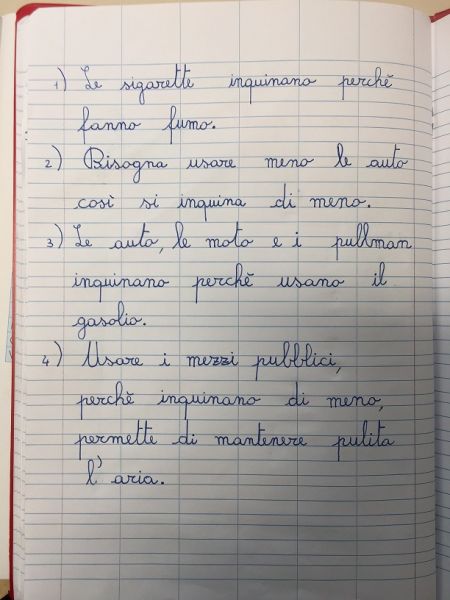 1) Le sigarette inquinano perchè
fanno fumo.
2) Bisogna usare meno le auto
così si inquina di meno.
3) Le auto, le moto e i pullman
inquinano perchè usano il
gasolio.
4) Usare i mezzi pubblici,
perchè inquinano di meno,
permette di mantenere pulita
l'aria.